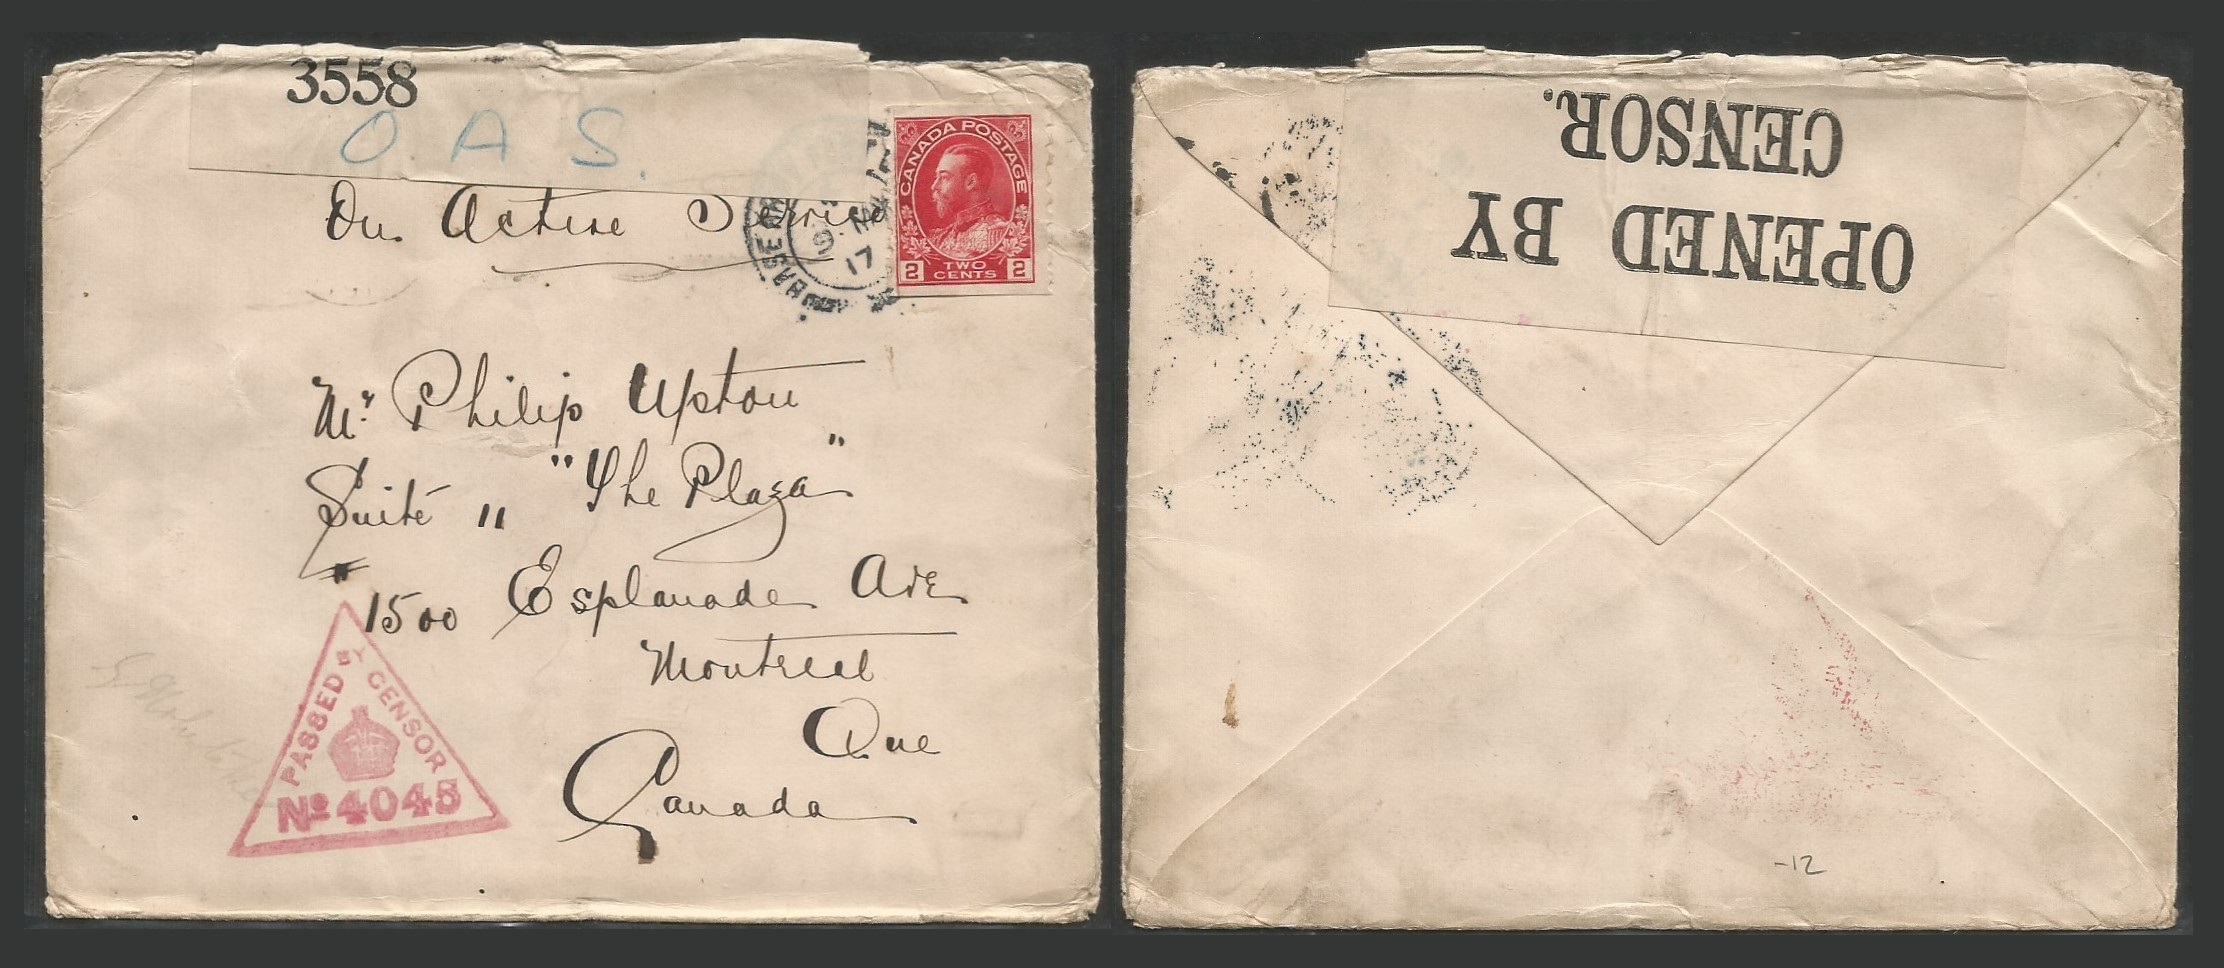 3558
O A S.
On Active Service
CANADA POSTAGE
2 TWO CENTS 2
Mr. Philip Upton
Suite 11 "The Plaza"
1500 Esplanade Ave
Montreal
Que
Canada
PASSED BY CENSOR
No 4045
OPENED BY
CENSOR.
-12